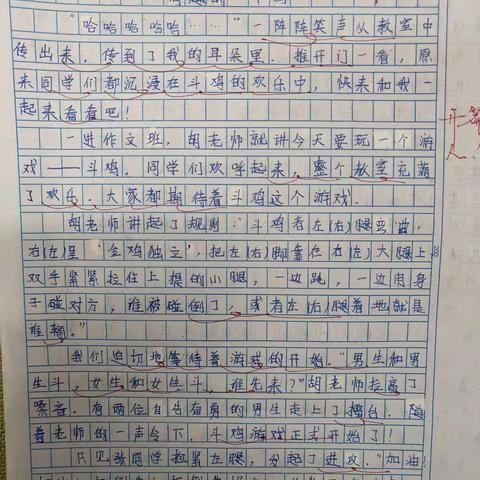 "哈哈哈哈哈哈……"一阵阵笑声从教室中
传出来，传到了我的耳朵里。推开门一看，原
来同学们都沉浸在斗鸡的欢乐中，快来和我一
起来看看吧！
一进作文班，胡老师就讲今天要玩一个游
戏——斗鸡。同学们欢呼起来，整个教室充满
了欢乐。大家都期待着斗鸡这个游戏。
胡老师讲起了规则："斗鸡者左(右)腿弯曲，
右(左)呈"金鸡独立"，把左(右)脚靠在右(左)大腿上
双手紧紧拉住上提的小腿，一边跳，一边用身
子碰对方，谁被碰倒了，或者左(右)腿着地就是
谁输。"
我们迫切地等待着游戏的开始。"男生和男
生斗，女生和女生斗，谁先来？"胡老师拉高了
嗓音。有两位自告奋勇的男生走上了擂台。随
着老师的一声令下，斗鸡游戏正式开始了！
只见张同学抱紧左腿，发起了进攻。"加油！
开篇